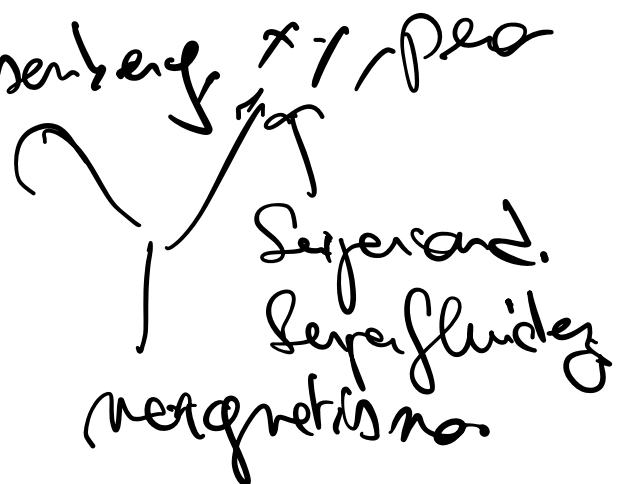 senberg, x-y, pero
Supercond.
Superfluidez
magnetismo